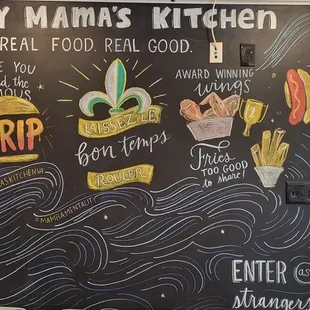 Y MAMA'S KITCHEN
REAL FOOD. REAL GOOD.
E YOU
D THE
RIP
ASKITCHENVA
#MAMBAMENTALITY
LAISSEZ LE
bon temps
ROULER
AWARD WINNING
wings
Fries
TOO GOOD
to share!
ENTER as
strangers